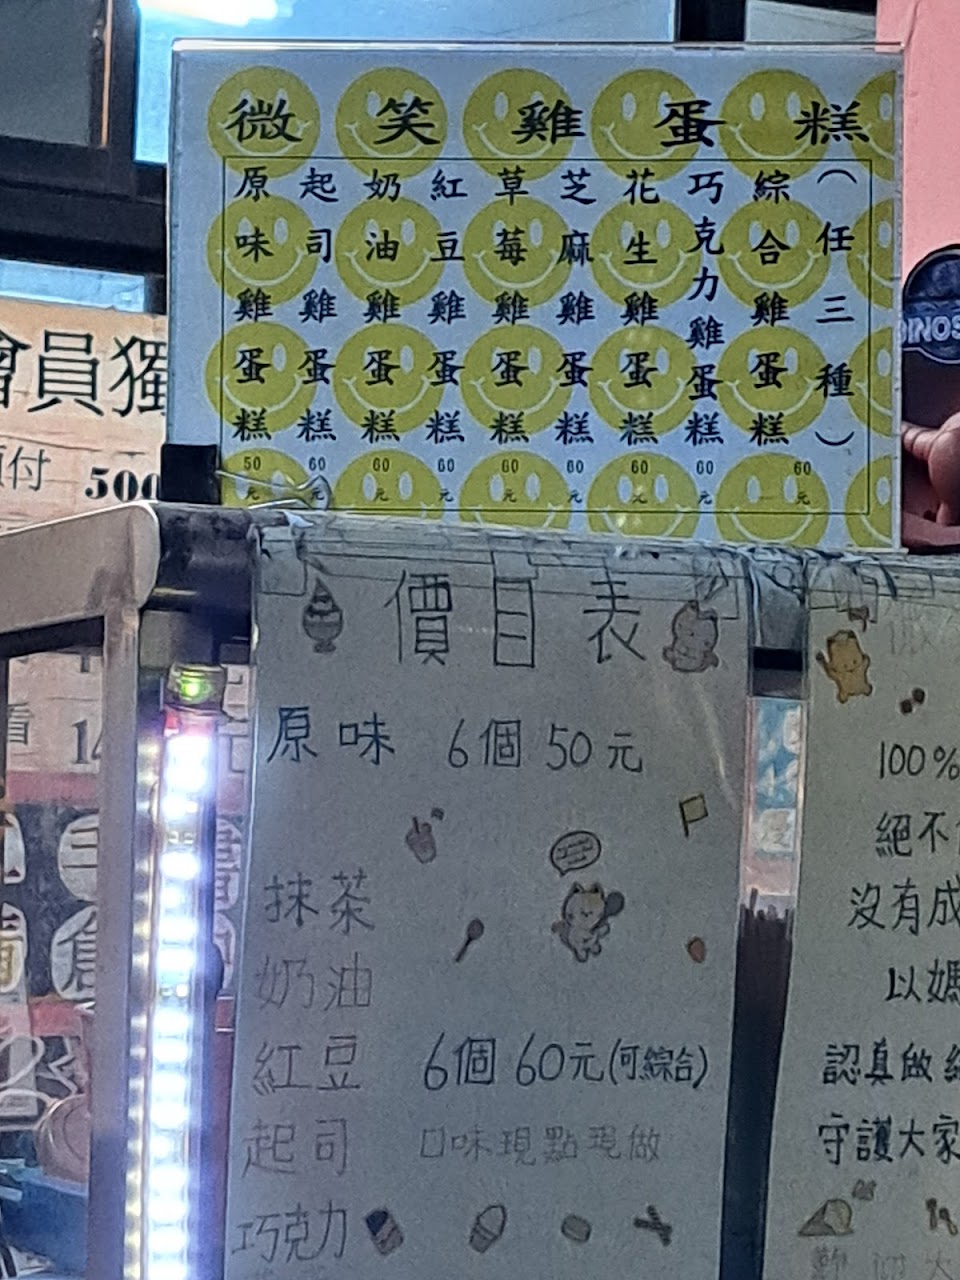 微笑雞蛋糕
原味雞蛋糕 50元
起司雞蛋糕 60元
奶油雞蛋糕 60元
紅豆雞蛋糕 60元
草莓雞蛋糕 60元
芝麻雞蛋糕 60元
花生雞蛋糕 60元
巧克力雞蛋糕 60元
綜合雞蛋糕
(任三種) 60元
會員獨
付 500
價目表
原味 6個 50元
抹茶
奶油
紅豆 6個 60元(可綜合)
起司 口味現點現做
巧克力
100%
絕不
沒有成
以媽
認真做
守護大家